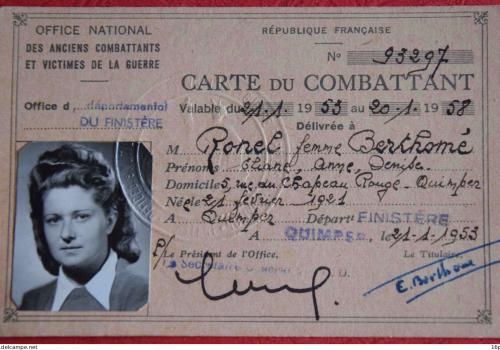 OFFICE NATIONAL
DES ANCIENS COMBATTANTS
ET VICTIMES DE LA GUERRE
Office d départemental
DU FINISTÈRE
RÉPUBLIQUE FRANÇAISE
No 93297
CARTE DU COMBATTANT
Valable du 21.1.1953 au 20.1.1958
Délivrée à
M Ronel femme Berthomé
Prénoms Eliane, Anne, Denise.
Domicile 5, rue du Chapeau Rouge. Quimper
Née le 21 février 1921
A Quimper Départ FINISTÈRE
A QUIMPER, le 21-1-1953
P/ Le Président de l'Office, Le Titulaire,
Le Secrétaire Général
E. Berthomé
alamet.net
16p